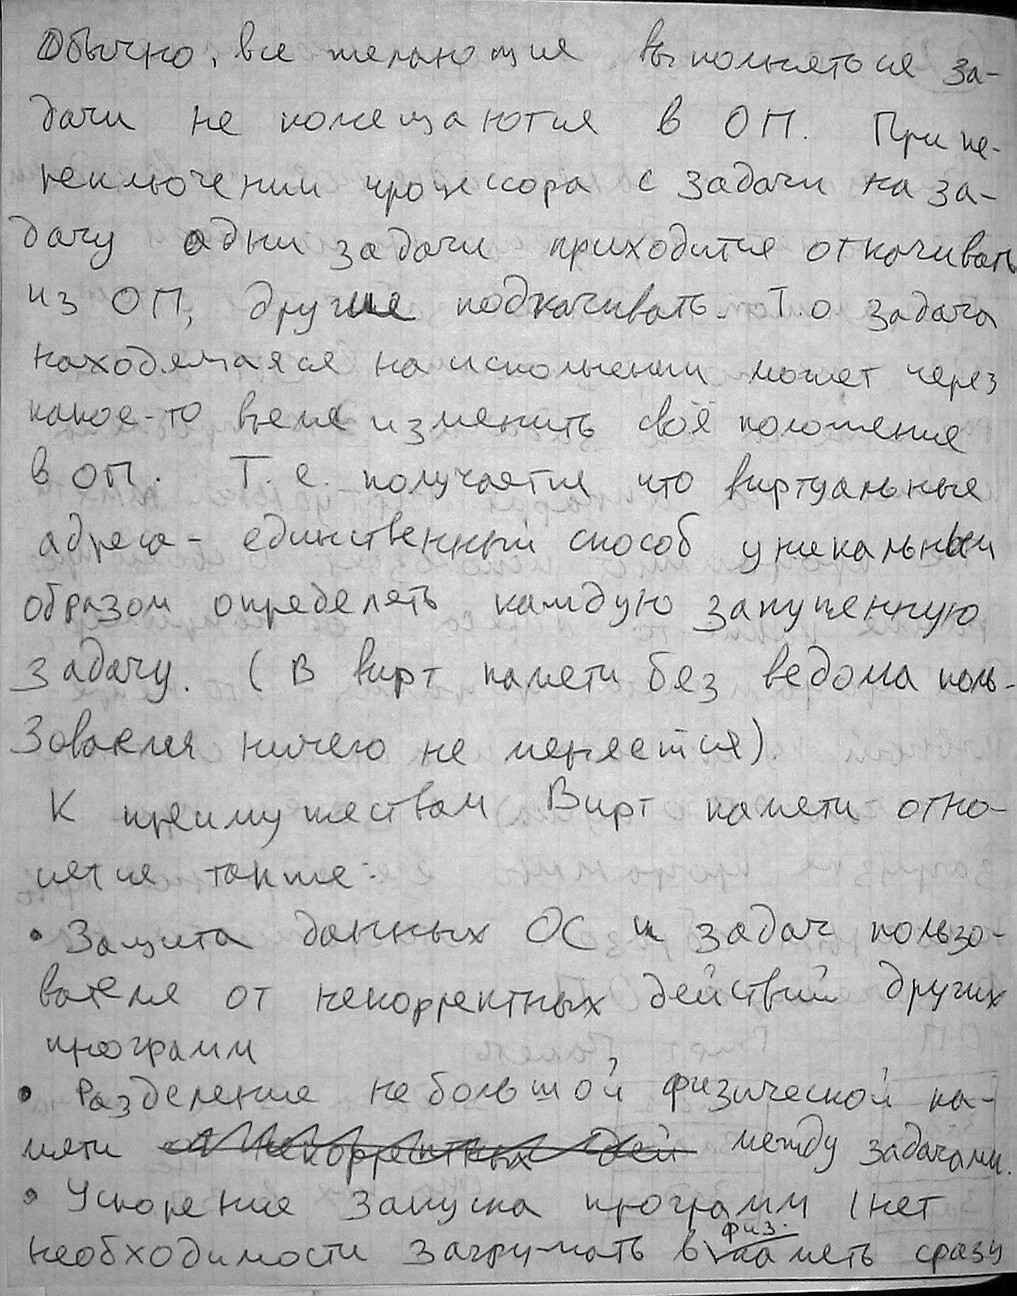 Обычно, все желающие выполняться за-
дачи не помещаются в ОП. При пе-
реключении процессора с задачи на за-
дачу одни задачи приходится откачивать
из ОП, другие подкачивать. Т.о задача
находящаяся на исполнении может через
какое-то время изменить своё положение
в ОП. Т.е. получается что виртуальные
адреса - единственный способ уникальным
образом определять каждую запущенную
задачу. (В вирт памяти без ведома поль-
зователя ничего не меняется).
К преимуществам Вирт памяти отно-
сятся также:
• Защита данных ОС и задач пользо-
вателя от некорректных действий других
программ
• Разделение небольшой физической па-
мяти между задачами.
• Ускорение запуска программ (нет
необходимости загружать в физ. память сразу